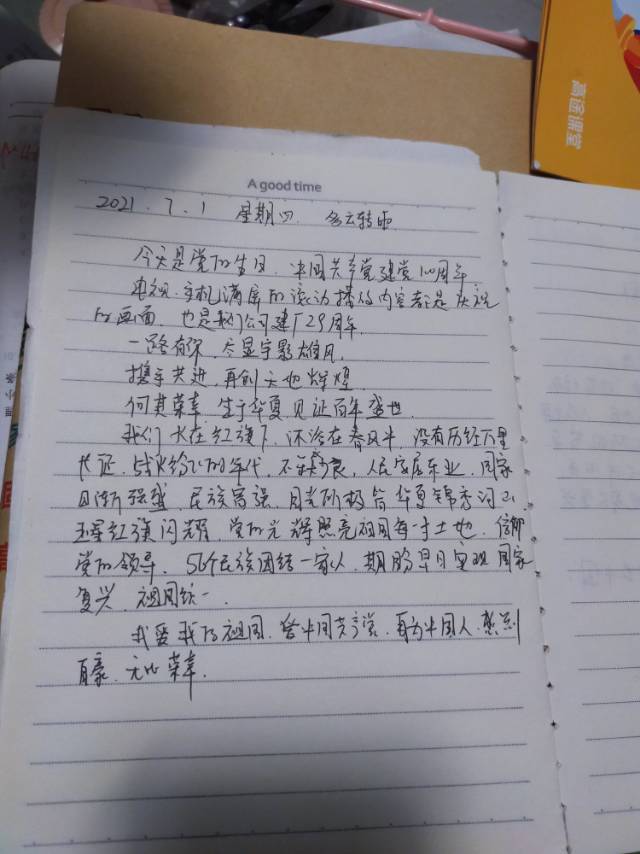 高途课堂
A good time
2021.7.1 星期四 多云转雨
今天是党的生日，中国共产党建党100周年
电视、手机满屏的滚动播放内容都是庆祝
的画面，也是我们公司建厂29周年，
一路有你，尽显宇影雄风，
携手共进，再创天地辉煌
何其荣幸 生于华夏 见证百年盛世
我们长在红旗下，沐浴在春风中，没有历经万里
长征，战火纷飞的年代，不 ，人民安居乐业，国家
日渐强盛，民族富强，目光所极皆华夏锦秀河山
五星红旗闪耀，党的光辉照亮祖国每一寸土地，信仰
党的领导，56个民族团结一家人，期盼早日实现国家
复兴，祖国统一
我爱我的祖国，爱中国共产党，身为中国人，感到
自豪，无比荣幸。